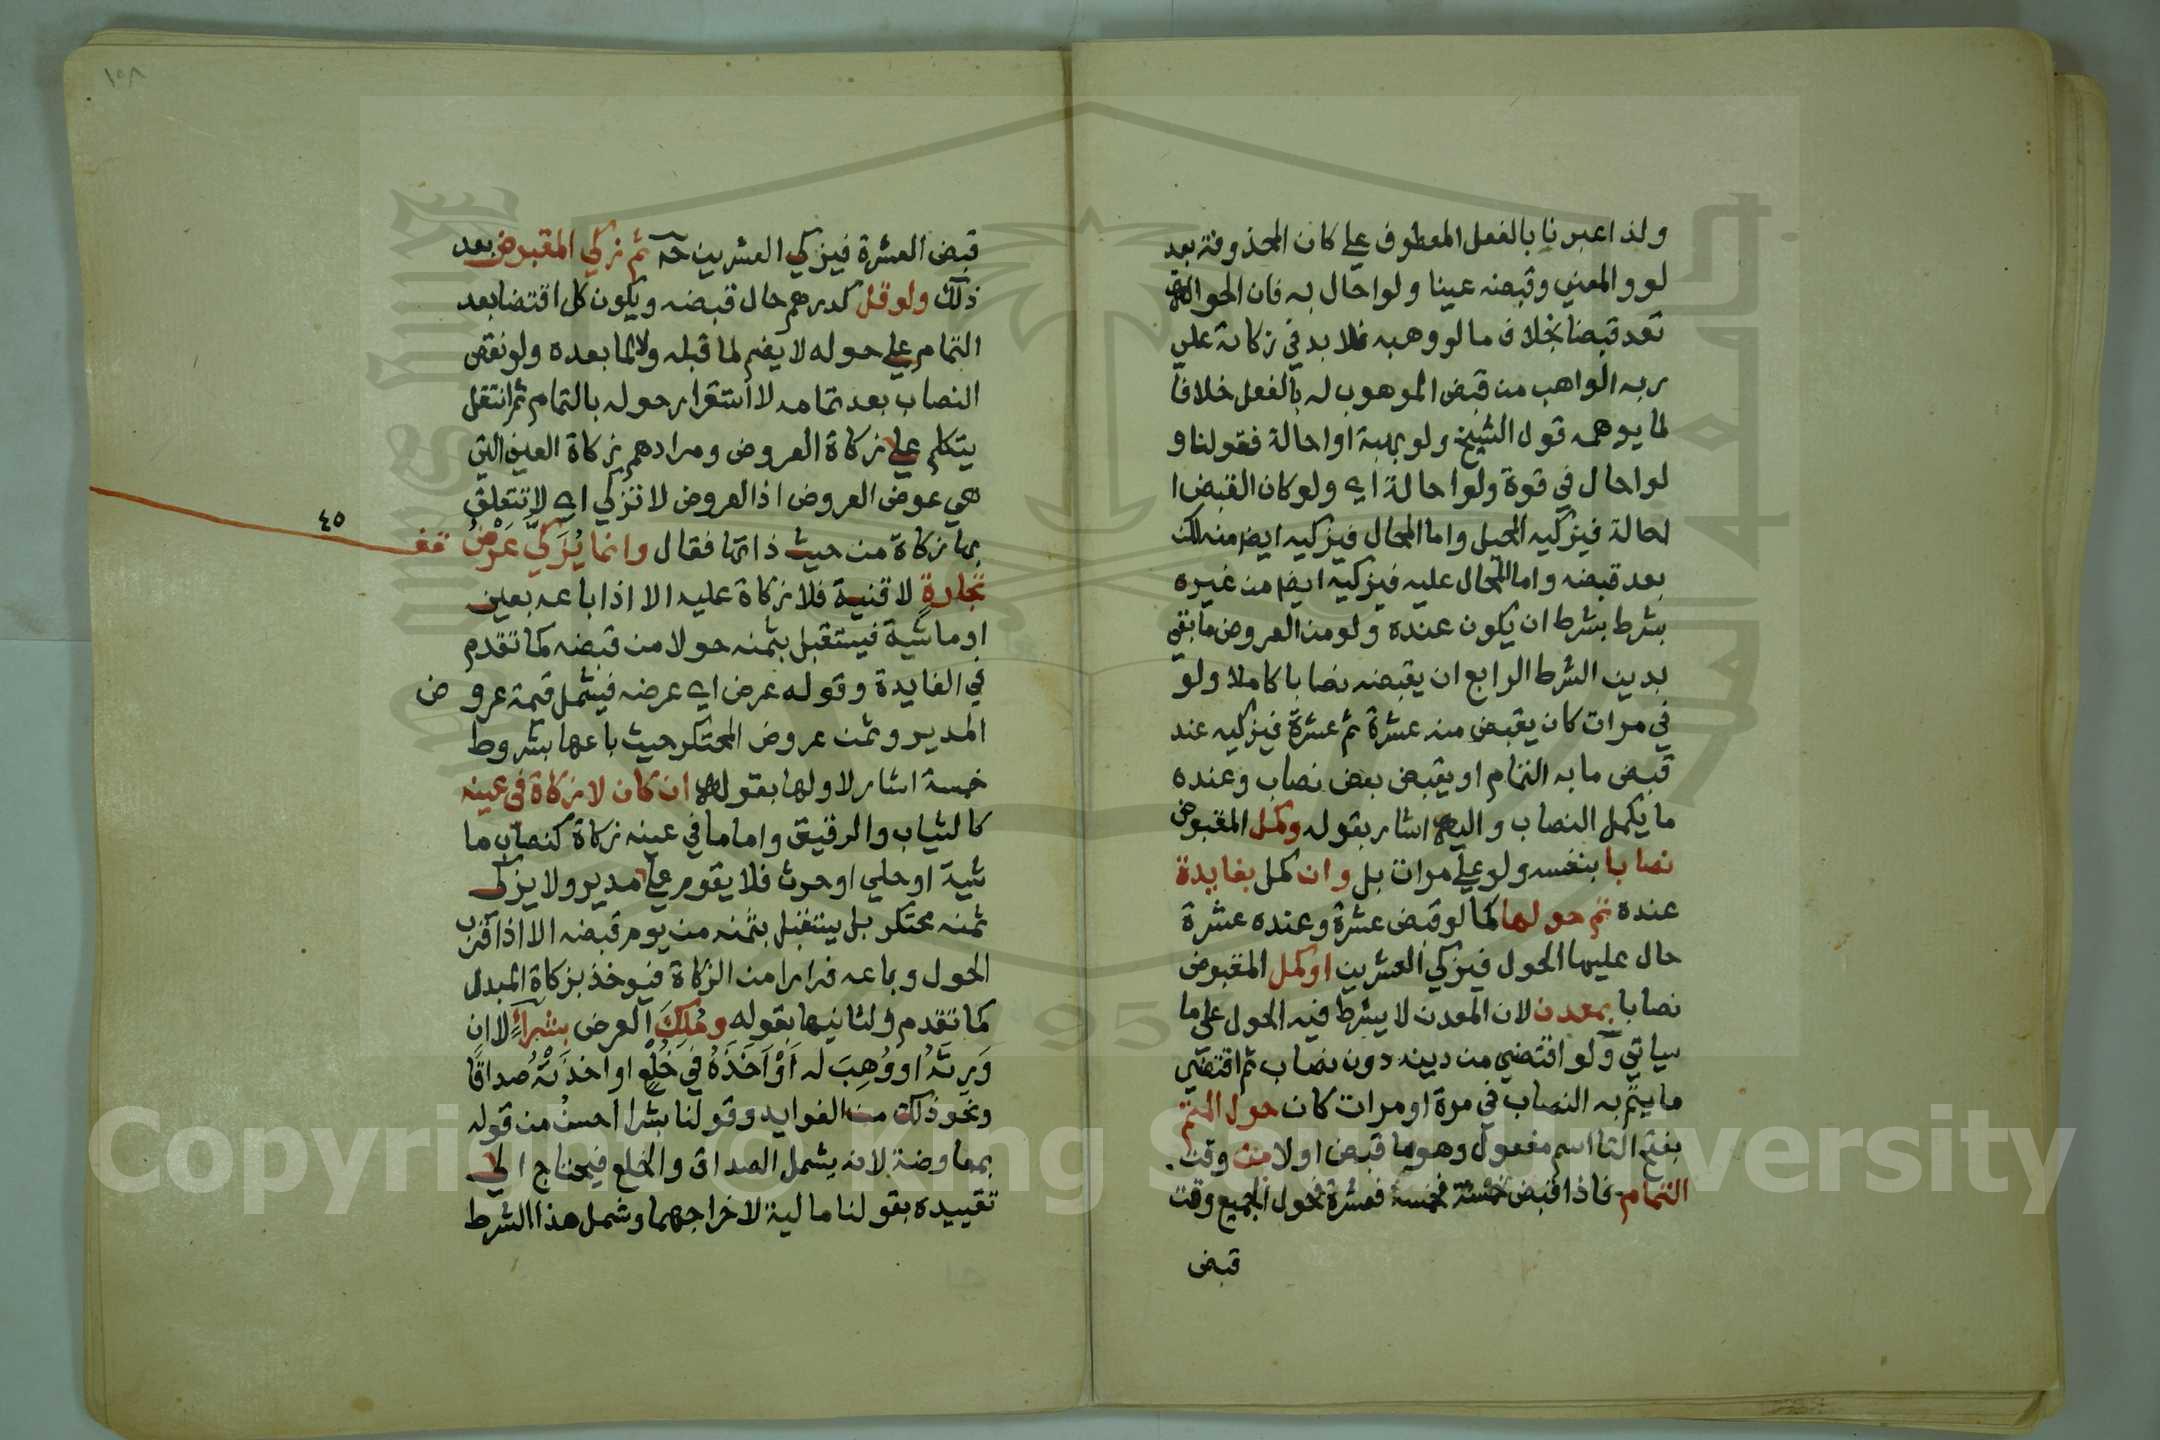 ولذا عبرنا بالفعل المعطوف علي كان المحذوفة بعد
لو والمعني وقبضه عينا ولو احال به فان الحوالة
تعد قبضا بخلاف ما لو وهبه فلا بد في زكاته علي
ربه الواهب من قبض الموهوب له بالفعل خلافا
لما يوهمه قول الشيخ ولو بهبة او احالة فقولنا و
لو احال في قوة ولو احالة اي ولو كان القبض ا
لحالة فيزكيه المحيل واما المحال فيزكيه ايضا منه لكن
بعد قبضه واما المحال عليه فيزكيه ايضا من غيره
بشرط بشرط ان يكون عنده ولو من العروض ما يفي
بدين الشرط الرابع ان يقبضه نصابا كاملا ولو
في مرات كان يقبض منه عشرة ثم عشرة فيزكيه عند
قبض ما به التمام او يقبض بعض نصاب وعنده
ما يكمل النصاب واليه اشار بقوله وكمل المقبوض
نصابا بنفسه ولو علي مرات بل وان كمل بفايدة
عنده تم حولها كما لو قبض عشرة وعنده عشرة
حال عليها الحول فيزكي العشرين او كمل المقبوض
نصابا بمعدن لان المعدن لا يشرط فيه الحول علي ما
سياتي ولو اقتضي من دينه دون نصاب ثم اقتضي
ما يتم به النصاب في مرة او مرات كان حول المتم
بفتح التا اسم مفعول وهو ما قبض اولا من وقت
التمام فاذا قبض خمسة فخمسة فعشرة فحول الجميع وقت
قبض
١٥٨
قبض العشرة فيزكي العشرين ح ثم زكي المقبوض بعد
ذلك ولو قل كدرهم حال قبضه ويكون كل اقتضا بعد
التمام علي حوله لا يضم لما قبله ولا لما بعده ولو نقص
النصاب بعد تمامه لاستقرار حوله بالتمام ثم انتقل
يتكلم علي زكاة العروض ومرادهم زكاة العين التي
هي عوض العروض اذ العروض لا تزكي اي لا تتعلق
٤٥
بها زكاة من حيث ذاتها فقال وانما يُزَكَّي عَرْضُ
تجارةٍ لا قنية فلا زكاة عليه الا اذا باعه بعين
او ماشية فيستقبل بثمنه حولا من قبضه كما تقدم
في الفايدة وقوله عرض اي عرضه فيشمل قيمة عروض
المدير وثمن عروض المحتكر حيث باعها بشروط
خمسة اشار لاولها بقوله ان كان لا زكاة في عينه
كالثياب والرقيق واما ما في عينه زكاة كنصاب ما
شية او حلي او حرث فلا يقوم علي مدير ولا يزكي
ثمنه محتكر بل يستقبل بثمنه من يوم قبضه الا اذا قرب
الحول وباعه فرارا من الزكاة فيوخذ بزكاة المبدل
كما تقدم ولثانيها بقوله ومُلِكَ العرض بشراءٍ لا ان
وَرِثَهُ او وُهِبَ له اَوْ اَخَذَهُ في خُلْعٍ او اخذَتْهُ صداقًا
ونحو ذلك من الفوايد وقولنا بشرا احسن من قوله
بمعاوضة لانه يشمل الصداق والخلع فيحتاج الي
تقييده بقولنا مالية لاخراجهما وشمل هذا الشرط
Copyright © King Saud University